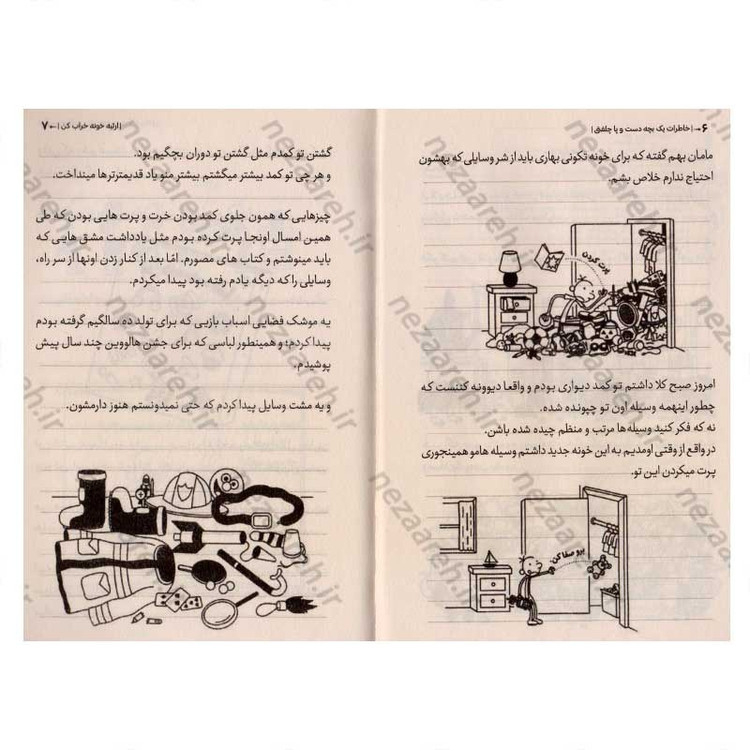 ۶ ← | خاطرات یک بچه دست و پا چلفتی |
مامان بهم گفته که برای خونه تکونی بهاری باید از شر وسایلی که بهشون
احتیاج ندارم خلاص بشم.
پرت کردن
امروز صبح کلا داشتم تو کمد دیواری بودم و واقعا دیوونه کننست که
چطور اینهمه وسیله اون تو چپونده شده.
نه که فکر کنید وسیله‌ها مرتب و منظم چیده شده باشن.
در واقع از وقتی اومدیم به این خونه جدید داشتم وسیله هامو همینجوری
پرت میکردن این تو.
برو صفا کن
| ارثیه خونه خراب کن | ← ۷
گشتن تو کمدم مثل گشتن تو دوران بچگیم بود.
و هر چی تو کمد بیشتر میگشتم بیشتر منو یاد قدیمترترها مینداخت.
چیزهایی که همون جلوی کمد بودن خرت و پرت هایی بودن که طی
همین امسال اونجا پرت کرده بودم مثل یادداشت مشق هایی که
باید مینوشتم و کتاب های مصورم. امّا بعد از کنار زدن اونها از سر راه،
وسایلی را که دیگه یادم رفته بود پیدا میکردم.
یه موشک فضایی اسباب بازیی که برای تولد ده سالگیم گرفته بودم
پیدا کردم؛ و همینطور لباسی که برای جشن هالووین چند سال پیش
پوشیدم.
و یه مشت وسایل پیدا کردم که حتی نمیدونستم هنوز دارمشون.
nezaareh.ir